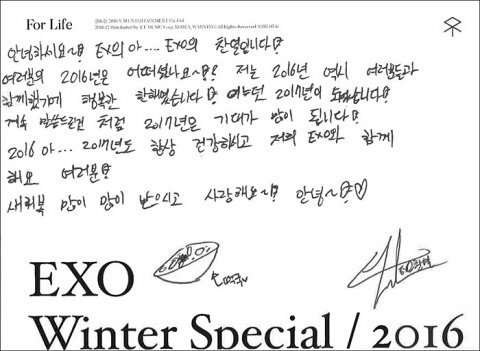 For Life
안녕하시요~! EXO의 아... EXO의 찬열입니다!
여러분의 2016년은 어떠셨나요~? 저는 2016년 역시 여러분들과
함께했기에 행복한 한해였습니다! 어느덧 2017년이 되었습니다!
계속 말씀드린것 처럼 2017년은 기대가 많이 됩니다!
2016 아... 2017년도 항상 건강하시고 저희 EXO와 함께
해요 여러분!
새해복 많이 많이 받으시고 사랑해요~! 안녕~!♡
EXO
Winter Special / 2016